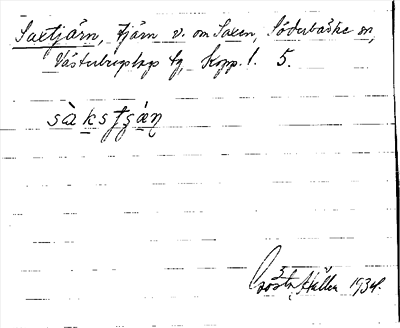 Saxtjärn, tjärn v. om Saxen, Söderbärke sn,
Västerbergslags tg, Kopp. l. 5.
sàkstɟä̀ɳ
1934.